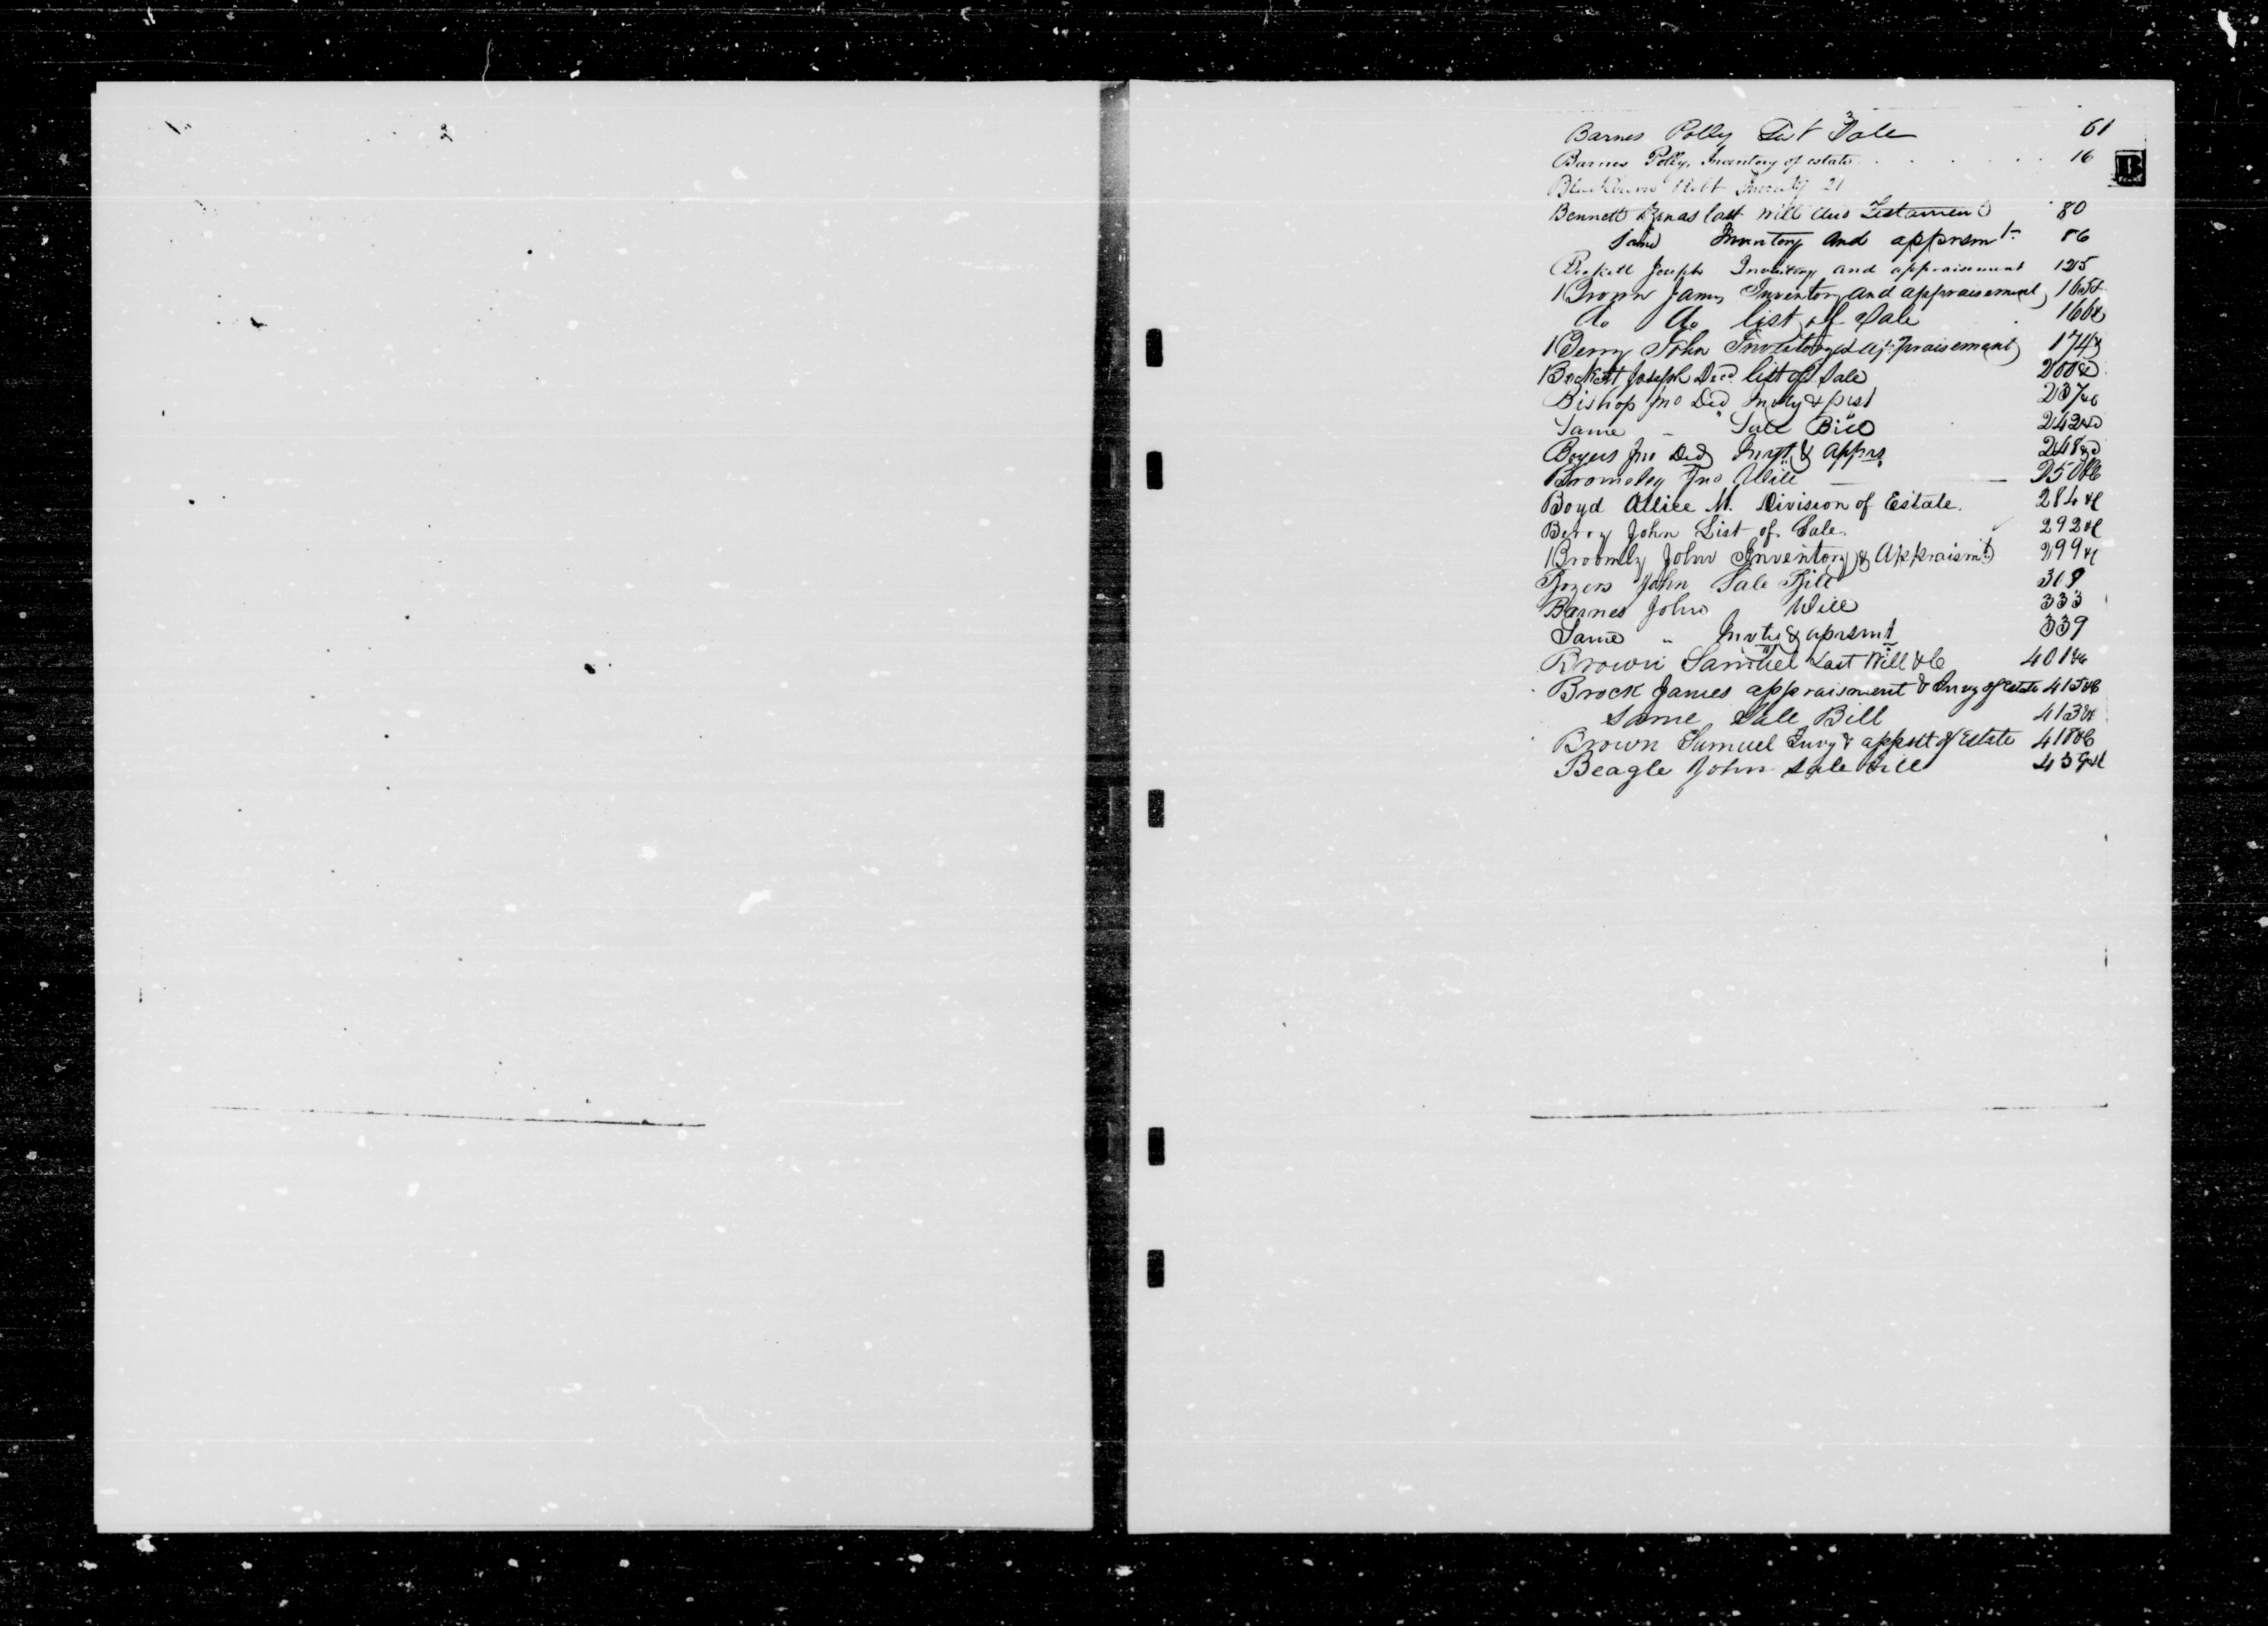 Barnes Polly List Sale 61
Barnes Polly, Inventory of estate 16
B
Blackburn Robt Inventy 21
Bennett Jonas last Will and Testament 80
Same Inventory and apprsmt. 86
Beckett Joseph Inventory and appraisement 125
Brown James Inventory and appraisement 165&
Do Do list of Sale 166&
Berry John Inventory & appraisement 174&
Beckett Joseph Decd. list of Sale 200&
Bishop Jno Decd Invty & prst 237&c
Same - Sale Bill 242&
Boyers Jno Decd Invt. & apprs 248&
Bromeley Jno Will — — 250&c
Boyd Allice M. Division of Estate. 284&c
Berry John List of Sale. 292&c
Broomly John Inventory & Appraismt 299&c
Boyers John Sale Bill 308
Barnes John Will 333
Same " Invty & aprsmt 339
Brown Samuel Last Will &c 401&c
Brock James appraisment & Invy of Estate 415&c
Same Sale Bill 413&c
Brown Samuel Invy & appstt of Estate 418&c
Beagle John Sale Bill 439&c